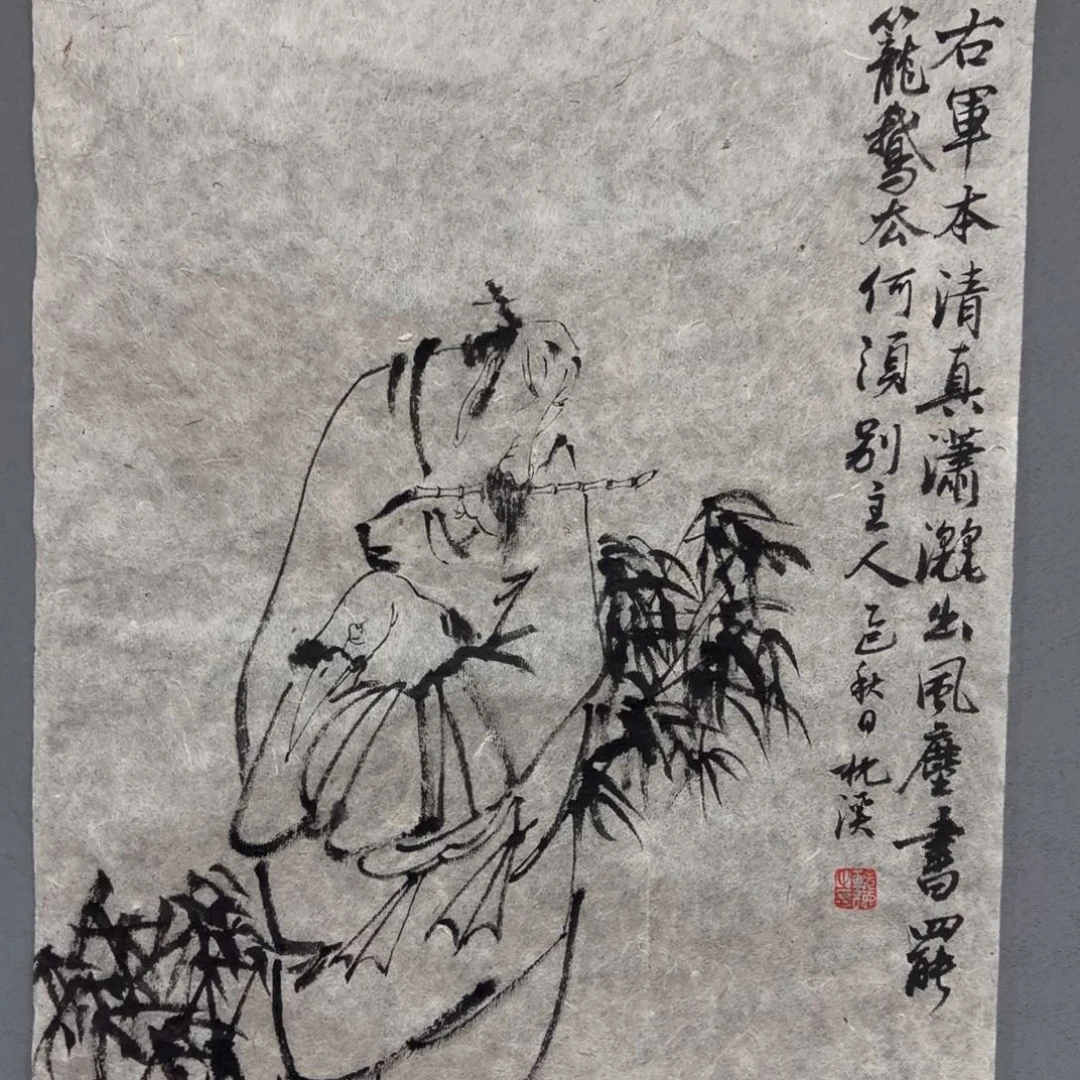 右軍本清真瀟灑出風塵書罷
籠鵝去何須別主人 乙巳秋日 枕溪